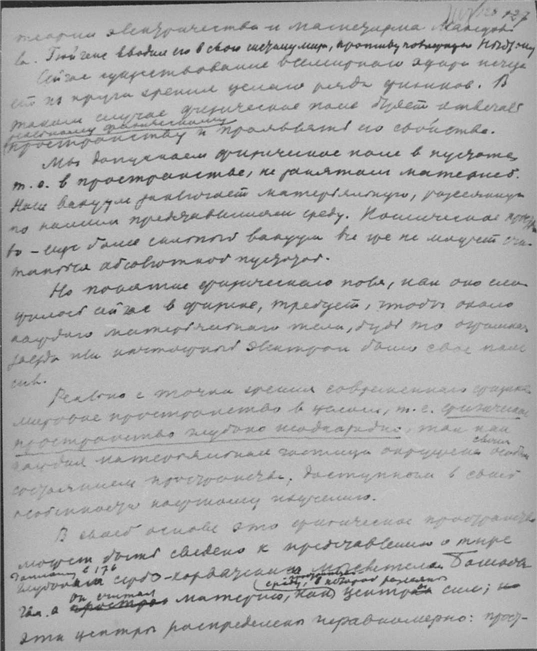 127
теории электричества и магнетизма Максвел-
ла. Гюйгенс вводил его в свою систему мира, противуположную Ньютону
Сейчас существование всемирного эфира исчеза-
ет из круга зрения целого ряда физиков. В
таком случае физическое поле будет отвечать
пространству и проявлять его свойства.
Мы допускаем физическое поле в пустоте,
т.е. в пространстве, не занятом материей.
Наш вакуум заключает материальную, рассеянную
по нашим представлениям среду. Космическое простран-
во – еще более сильный вакуум все же не может счи-
таться абсолютной пустотой.
Но понятие физического поля, как оно сло-
жилось сейчас в физике, требует, чтобы около
каждого материального тела, будь то огромная
звезда или ничтожный электрон было свое поле
сил.
Реально с точки зрения современного физика
мировое пространство в целом, т.е. физическое
пространство глубоко неоднородно, так как
каждая материальная частица окружена своим особым
состоянием пространства, доступным в своей
особенности научному изучению.
В своей основе это физическое пространство
может быть сведено к представлению о мире
глубокого сербо-хорватского мыслителя Бошкови-
ча. он считал материю, как центры сил;
эти центры распределены неравномерно: прост-